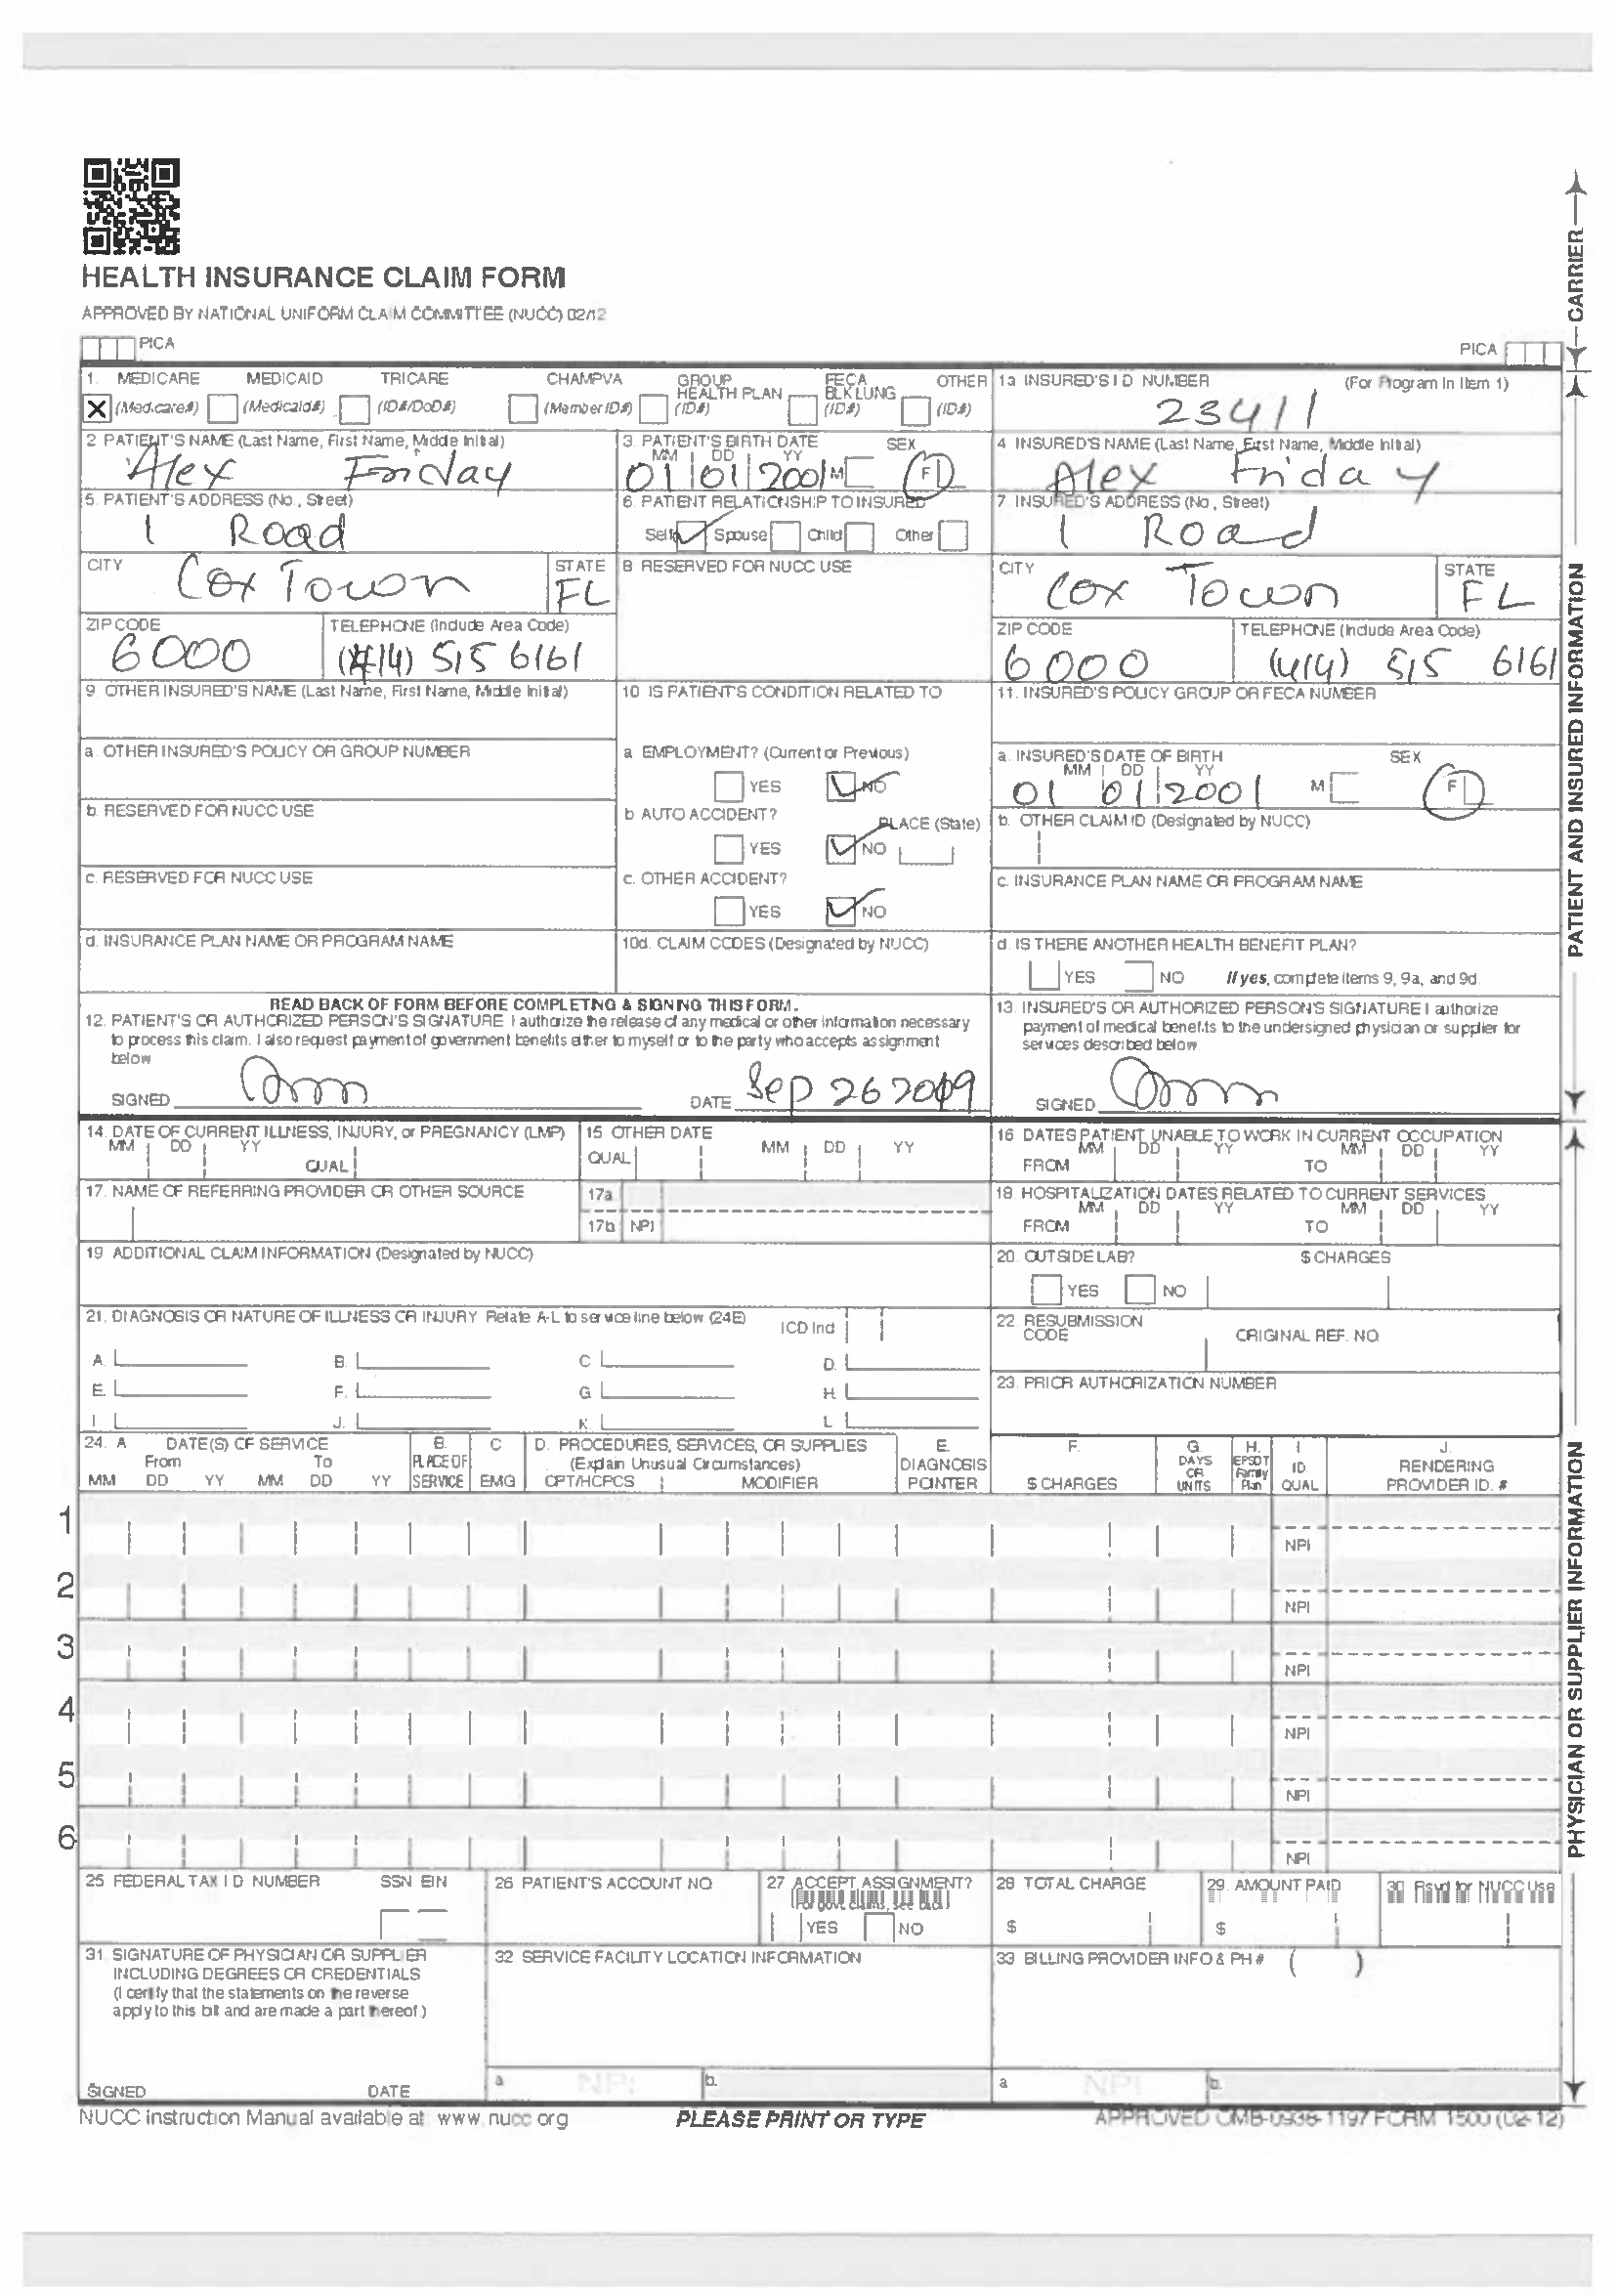 HEALTH INSURANCE CLAIM FORM
APPROVED BY NATIONAL UNIFORM CLAIM COMMITTEE (NUCC) 02/12
PICA PICA
CARRIER
1. MEDICARE MEDICAID TRICARE CHAMPVA GROUP HEALTH PLAN FECA BLK LUNG OTHER
(Medicare#) (Medicaid#) (ID#/DoD#) (Member ID#) (ID#) (ID#) (ID#)
1a INSURED'S I D NUMBER (For Program in Item 1)
23411
2 PATIENT'S NAME (Last Name, First Name, Middle Initial)
Alex Friday
3. PATIENT'S BIRTH DATE SEX
MM DD YY
01 01 2001 M F
4 INSURED'S NAME (Last Name, First Name, Middle Initial)
Alex Friday
5. PATIENT'S ADDRESS (No., Street)
1 Road
6. PATIENT RELATIONSHIP TO INSURED
Self Spouse Child Other
7. INSURED'S ADDRESS (No, Street)
1 Road
CITY STATE
Cox Town FL
8 RESERVED FOR NUCC USE
CITY STATE
Cox Town FL
ZIP CODE TELEPHONE (Include Area Code)
6000 (414) 515 6161
ZIP CODE TELEPHONE (Include Area Code)
6000 (414) 515 6161
9. OTHER INSURED'S NAME (Last Name, First Name, Middle Initial)
10. IS PATIENT'S CONDITION RELATED TO
11. INSURED'S POLICY GROUP OR FECA NUMBER
a. OTHER INSURED'S POLICY OR GROUP NUMBER
a. EMPLOYMENT? (Current or Previous)
YES NO
a. INSURED'S DATE OF BIRTH SEX
MM DD YY
01 01 2001 M F
b. RESERVED FOR NUCC USE
b AUTO ACCIDENT? PLACE (State)
YES NO
b. OTHER CLAIM ID (Designated by NUCC)
c. RESERVED FOR NUCC USE
c. OTHER ACCIDENT?
YES NO
c. INSURANCE PLAN NAME OR PROGRAM NAME
d. INSURANCE PLAN NAME OR PROGRAM NAME
10d. CLAIM CODES (Designated by NUCC)
d. IS THERE ANOTHER HEALTH BENEFIT PLAN?
YES NO If yes, complete items 9, 9a, and 9d
READ BACK OF FORM BEFORE COMPLETING & SIGNING THIS FORM.
12. PATIENT'S OR AUTHORIZED PERSON'S SIGNATURE I authorize the release of any medical or other information necessary
to process this claim. I also request payment of government benefits either to myself or to the party who accepts assignment
below
SIGNED DATE Sep 26 2019
13. INSURED'S OR AUTHORIZED PERSON'S SIGNATURE I authorize
payment of medical benefits to the undersigned physician or supplier for
services described below.
SIGNED
PATIENT AND INSURED INFORMATION
14. DATE OF CURRENT ILLNESS, INJURY, or PREGNANCY (LMP)
MM DD YY QUAL
15 OTHER DATE
QUAL MM DD YY
16 DATES PATIENT UNABLE TO WORK IN CURRENT OCCUPATION
MM DD YY MM DD YY
FROM TO
17. NAME OF REFERRING PROVIDER OR OTHER SOURCE
17a
17b NPI
18. HOSPITALIZATION DATES RELATED TO CURRENT SERVICES
MM DD YY MM DD YY
FROM TO
19 ADDITIONAL CLAIM INFORMATION (Designated by NUCC)
20. OUTSIDE LAB? $ CHARGES
YES NO
21. DIAGNOSIS OR NATURE OF ILLNESS OR INJURY Relate A-L to service line below (24E) ICD Ind
A. B. C D.
E. F. G H.
I. J. K. L
22. RESUBMISSION CODE ORIGINAL REF. NO.
23. PRIOR AUTHORIZATION NUMBER
24. A DATE(S) OF SERVICE B. C D. PROCEDURES, SERVICES, OR SUPPLIES E. F. G. H. I J.
From To PLACE OF (Explain Unusual Circumstances) DIAGNOSIS DAYS OR UNITS EPSDT Family Plan ID. RENDERING
MM DD YY MM DD YY SERVICE EMG CPT/HCPCS MODIFIER POINTER $ CHARGES QUAL PROVIDER ID. #
1 NPI
2 NPI
3 NPI
4 NPI
5 NPI
6 NPI
25 FEDERAL TAX I D NUMBER SSN EIN
26 PATIENT'S ACCOUNT NO
27 ACCEPT ASSIGNMENT?
(For govt. claims, see back)
YES NO
28 TOTAL CHARGE
$
29. AMOUNT PAID
$
30 Rsvd for NUCC Use
31. SIGNATURE OF PHYSICIAN OR SUPPLIER
INCLUDING DEGREES OR CREDENTIALS
(I certify that the statements on the reverse
apply to this bill and are made a part thereof.)
SIGNED DATE
32 SERVICE FACILITY LOCATION INFORMATION
a NPI b.
33 BILLING PROVIDER INFO & PH # ( )
a NPI b.
PHYSICIAN OR SUPPLIER INFORMATION
NUCC Instruction Manual available at www.nucc.org
PLEASE PRINT OR TYPE
APPROVED OMB-0938-1197 FORM 1500 (02-12)